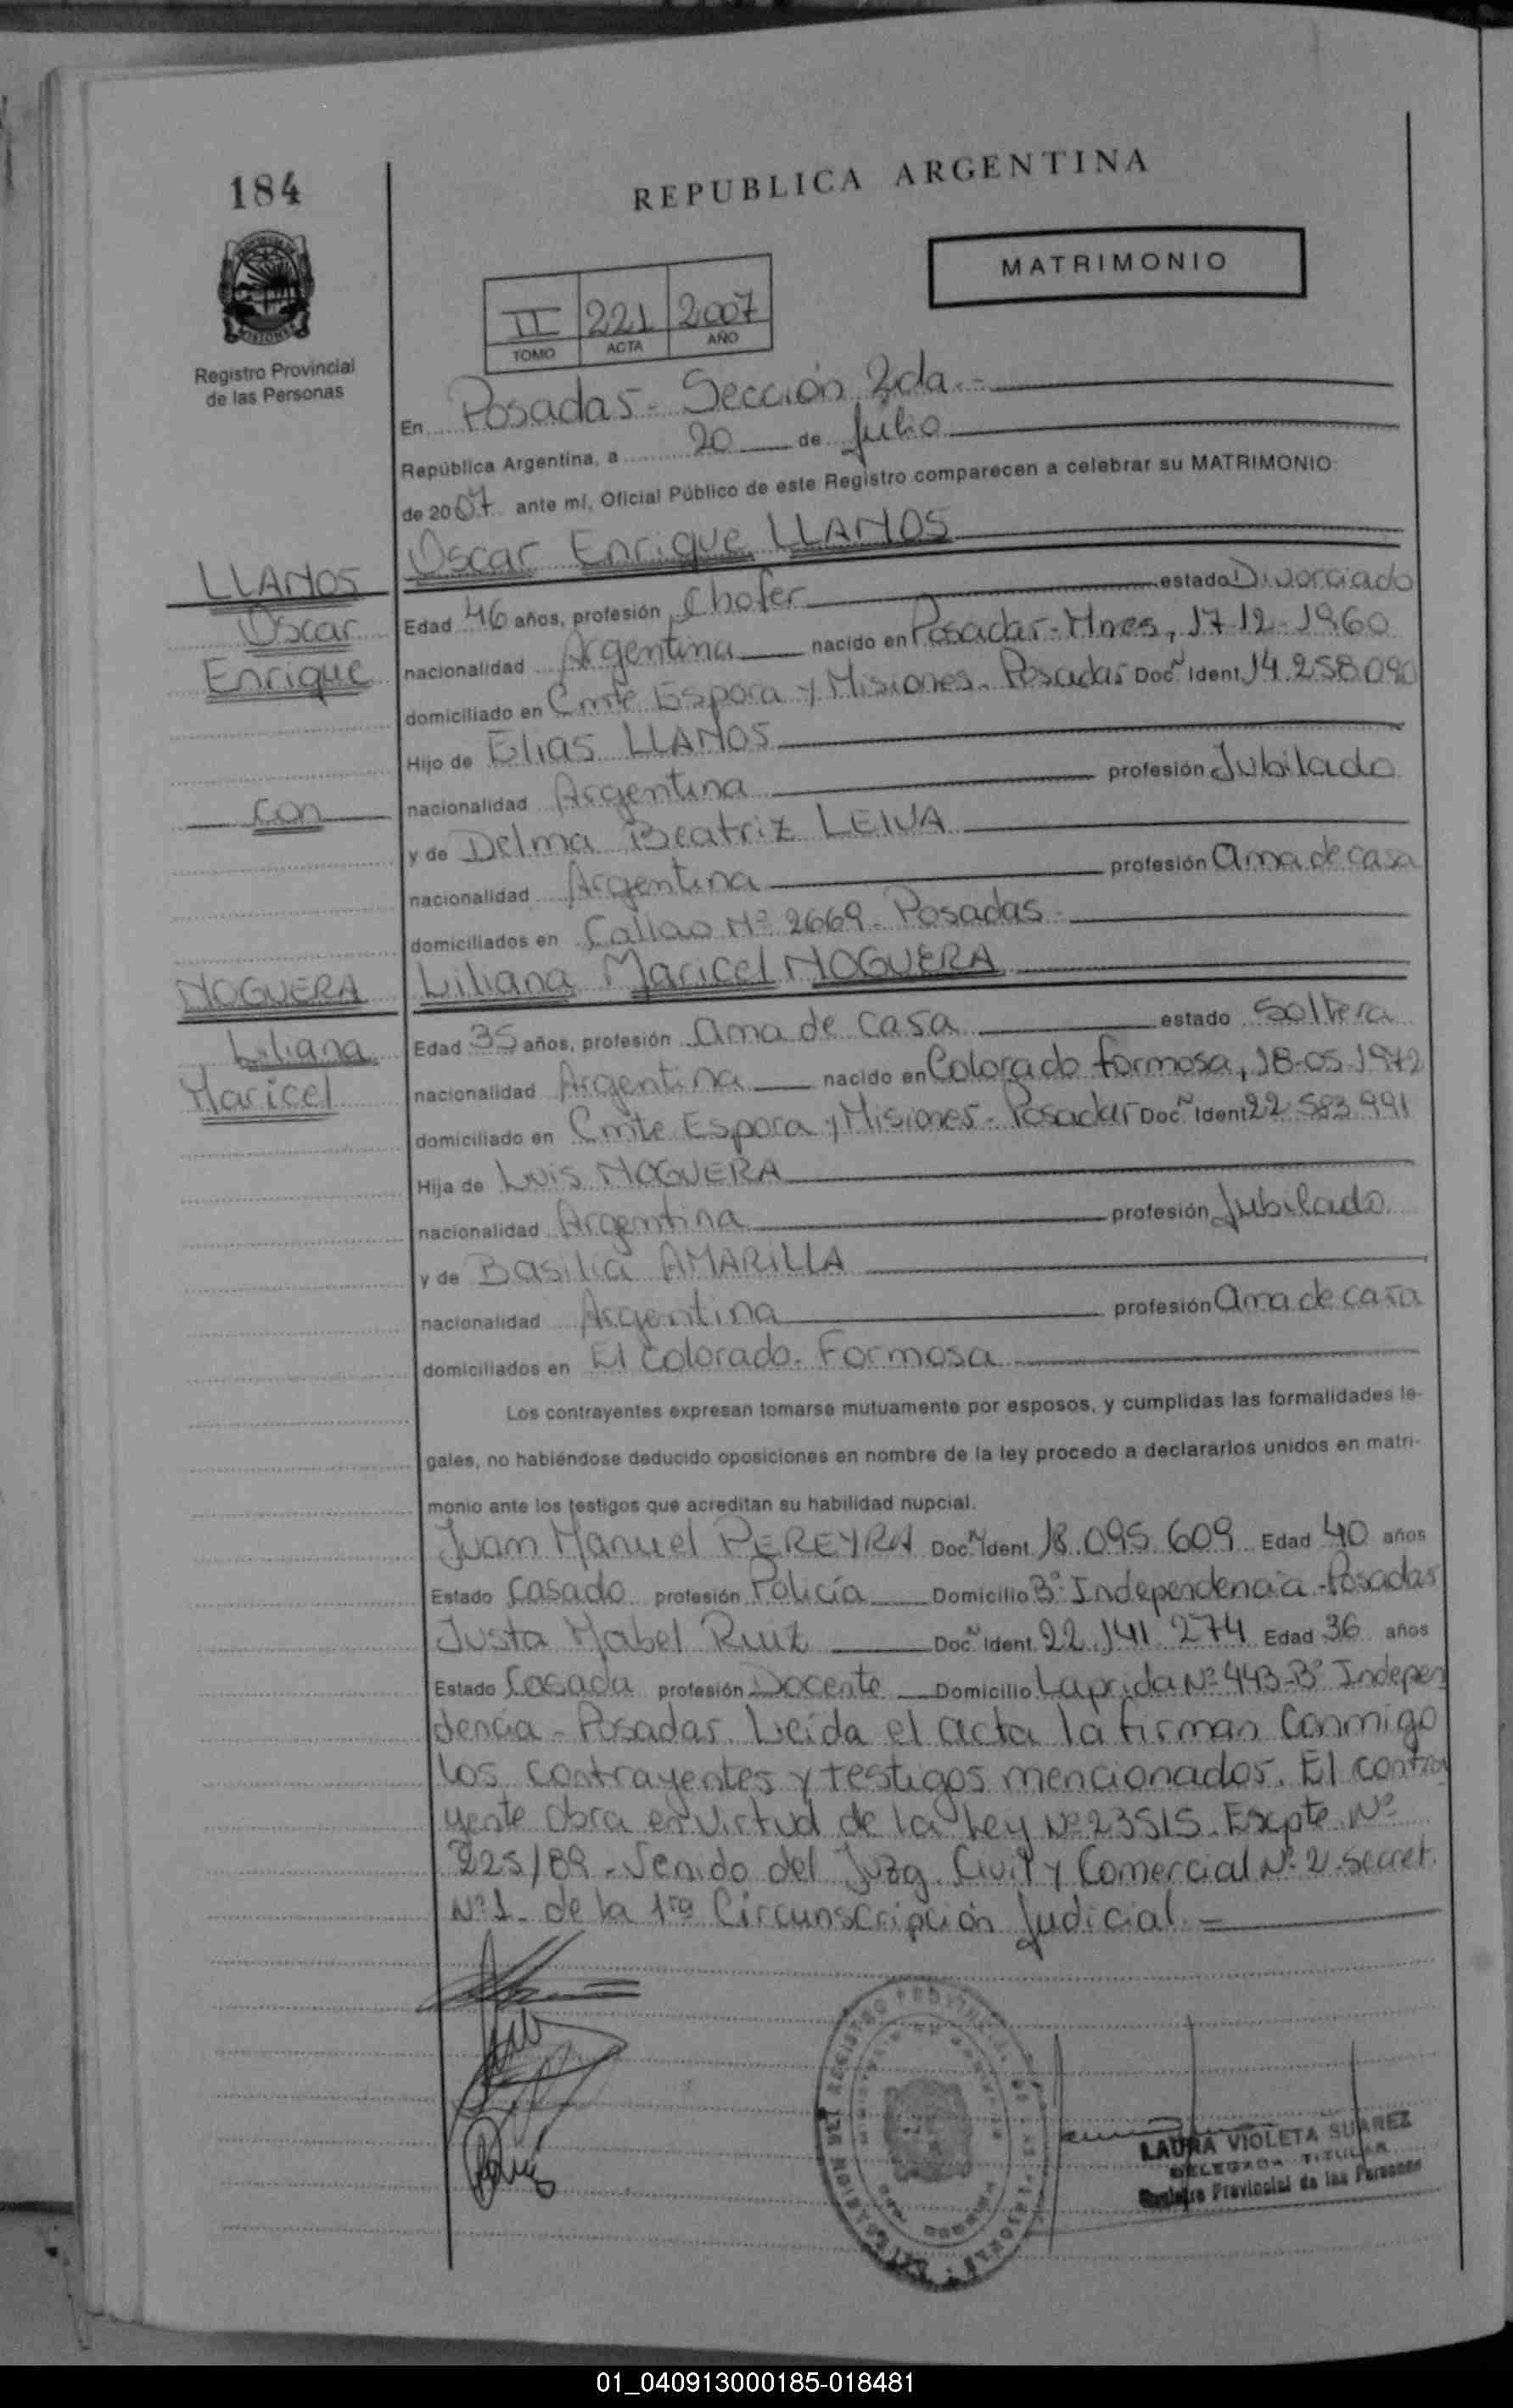 184
REPUBLICA ARGENTINA
MATRIMONIO
Registro Provincial
de las Personas
II 221 2007
TOMO ACTA AÑO
En Posadas - Sección 2da.-
República Argentina, a 20 de Julio
de 2007 ante mí, Oficial Público de este Registro comparecen a celebrar su MATRIMONIO:
LLANOS
Oscar
Enrique
Oscar Enrique LLANOS
Edad 46 años, profesión Chofer estado Divorciado
nacionalidad Argentina nacido en Posadas-Mnes, 17-12-1960
domiciliado en Cmte Espora y Misiones. Posadas Doc. Ident. 14.258.090
Hijo de Elias LLANOS
nacionalidad Argentina profesión Jubilado
con
y de Delma Beatriz LEIVA
nacionalidad Argentina profesión ama de casa
domiciliados en Callao Nº 2669 - Posadas
NOGUERA
Liliana
Maricel
Liliana Maricel NOGUERA
Edad 35 años, profesión ama de casa estado Soltera
nacionalidad Argentina nacido en Colorado formosa, 18-05-1972
domiciliado en Cmte Espora y Misiones - Posadas Doc. Ident 22.583.991
Hija de Luis NOGUERA
nacionalidad Argentina profesión Jubilado
y de Basilia AMARILLA
nacionalidad Argentina profesión ama de casa
domiciliados en El Colorado. Formosa
Los contrayentes expresan tomarse mutuamente por esposos, y cumplidas las formalidades le-
gales, no habiéndose deducido oposiciones en nombre de la ley procedo a declararlos unidos en matri-
monio ante los testigos que acreditan su habilidad nupcial.
Juan Manuel PEREYRA Doc. Ident. 18.095.609 Edad 40 años
Estado Casado profesión Policía Domicilio Bº Independencia - Posadas
Justa Mabel Ruiz Doc. Ident. 22.141.274 Edad 36 años
Estado Casada profesión Docente Domicilio Laprida Nº 443-Bº Indepen
dencia - Posadas. Leída el acta la firman conmigo
los contrayentes y testigos mencionados. El contra
yente obra en virtud de la Ley Nº 23515. Expte. Nº
225/89 - Venido del Juzg. Civil y Comercial Nº 2 - Secret.
Nº 1 de la 1ra Circunscripción Judicial.=
LAURA VIOLETA SUAREZ
DELEGADA TITULAR
Registro Provincial de las Personas
01_040913000185-018481